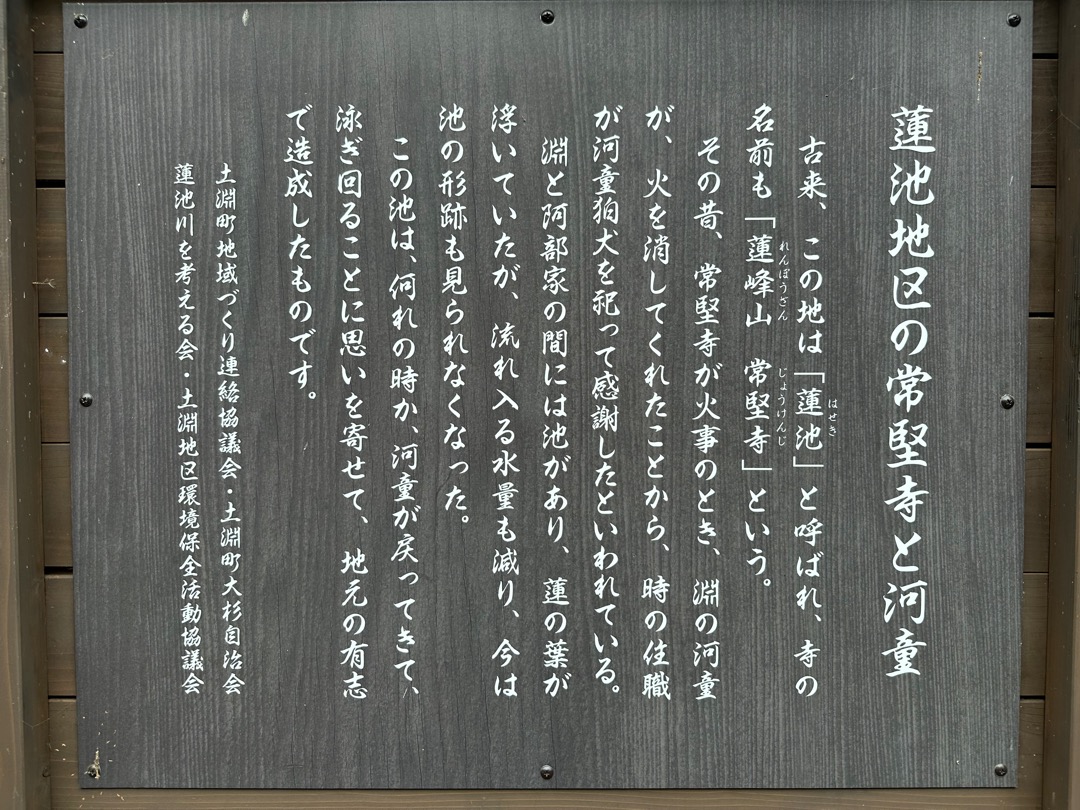 蓮池地区の常堅寺と河童
古来、この地は「蓮池」と呼ばれ、寺の
はせき
名前も「蓮峰山 常堅寺」という。
れんぽうざん じょうけんじ
その昔、常堅寺が火事のとき、淵の河童
が、火を消してくれたことから、時の住職
が河童狛犬を祀って感謝したといわれている。
淵と阿部家の間には池があり、蓮の葉が
浮いていたが、流れ入る水量も減り、今は
池の形跡も見られなくなった。
この池は、何れの時か、河童が戻ってきて、
泳ぎ回ることに思いを寄せて、地元の有志
で造成したものです。
土淵町地域づくり連絡協議会・土淵町大杉自治会
蓮池川を考える会・土淵地区環境保全活動協議会